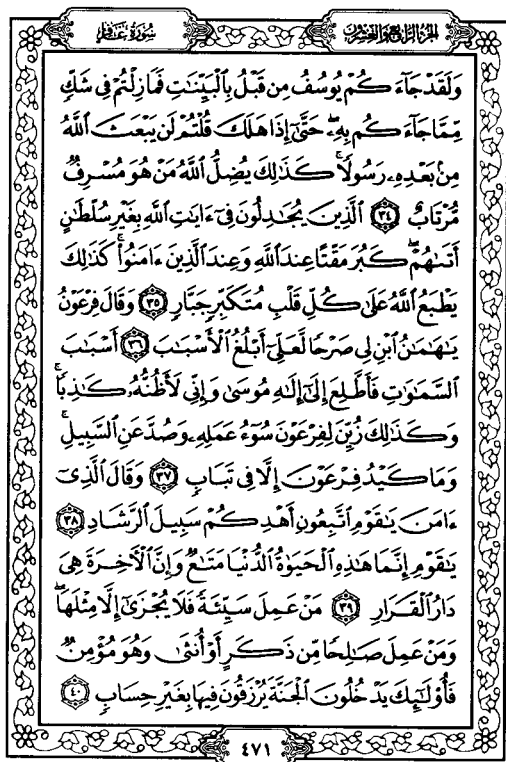 سُورَةُ غَافِرٍ
الجزء الرابع والعشرون
وَلَقَدْ جَآءَكُمْ يُوسُفُ مِن قَبْلُ بِالْبَيِّنَٰتِ فَمَا زِلْتُمْ فِى شَكٍّ
مِّمَّا جَآءَكُم بِهِۦ حَتَّىٰٓ إِذَا هَلَكَ قُلْتُمْ لَن يَبْعَثَ ٱللَّهُ
مِنۢ بَعْدِهِۦ رَسُولًاۚ كَذَٰلِكَ يُضِلُّ ٱللَّهُ مَنْ هُوَ مُسْرِفٌ
مُّرْتَابٌ ٣٤ ٱلَّذِينَ يُجَٰدِلُونَ فِىٓ ءَايَٰتِ ٱللَّهِ بِغَيْرِ سُلْطَٰنٍ
أَتَىٰهُمْۖ كَبُرَ مَقْتًا عِندَ ٱللَّهِ وَعِندَ ٱلَّذِينَ ءَامَنُوا۟ۚ كَذَٰلِكَ
يَطْبَعُ ٱللَّهُ عَلَىٰ كُلِّ قَلْبِ مُتَكَبِّرٍ جَبَّارٍ ٣٥ وَقَالَ فِرْعَوْنُ
يَٰهَٰمَٰنُ ٱبْنِ لِى صَرْحًا لَّعَلِّىٓ أَبْلُغُ ٱلْأَسْبَٰبَ ٣٦ أَسْبَٰبَ
ٱلسَّمَٰوَٰتِ فَأَطَّلِعَ إِلَىٰٓ إِلَٰهِ مُوسَىٰ وَإِنِّى لَأَظُنُّهُۥ كَٰذِبًاۚ
وَكَذَٰلِكَ زُيِّنَ لِفِرْعَوْنَ سُوٓءُ عَمَلِهِۦ وَصُدَّ عَنِ ٱلسَّبِيلِۚ
وَمَا كَيْدُ فِرْعَوْنَ إِلَّا فِى تَبَابٍ ٣٧ وَقَالَ ٱلَّذِىٓ
ءَامَنَ يَٰقَوْمِ ٱتَّبِعُونِ أَهْدِكُمْ سَبِيلَ ٱلرَّشَادِ ٣٨
يَٰقَوْمِ إِنَّمَا هَٰذِهِ ٱلْحَيَوٰةُ ٱلدُّنْيَا مَتَٰعٌ وَإِنَّ ٱلْءَاخِرَةَ هِىَ
دَارُ ٱلْقَرَارِ ٣٩ مَنْ عَمِلَ سَيِّئَةً فَلَا يُجْزَىٰٓ إِلَّا مِثْلَهَاۖ
وَمَنْ عَمِلَ صَٰلِحًا مِّن ذَكَرٍ أَوْ أُنثَىٰ وَهُوَ مُؤْمِنٌ
فَأُو۟لَٰٓئِكَ يَدْخُلُونَ ٱلْجَنَّةَ يُرْزَقُونَ فِيهَا بِغَيْرِ حِسَابٍ ٤٠
٤٧١